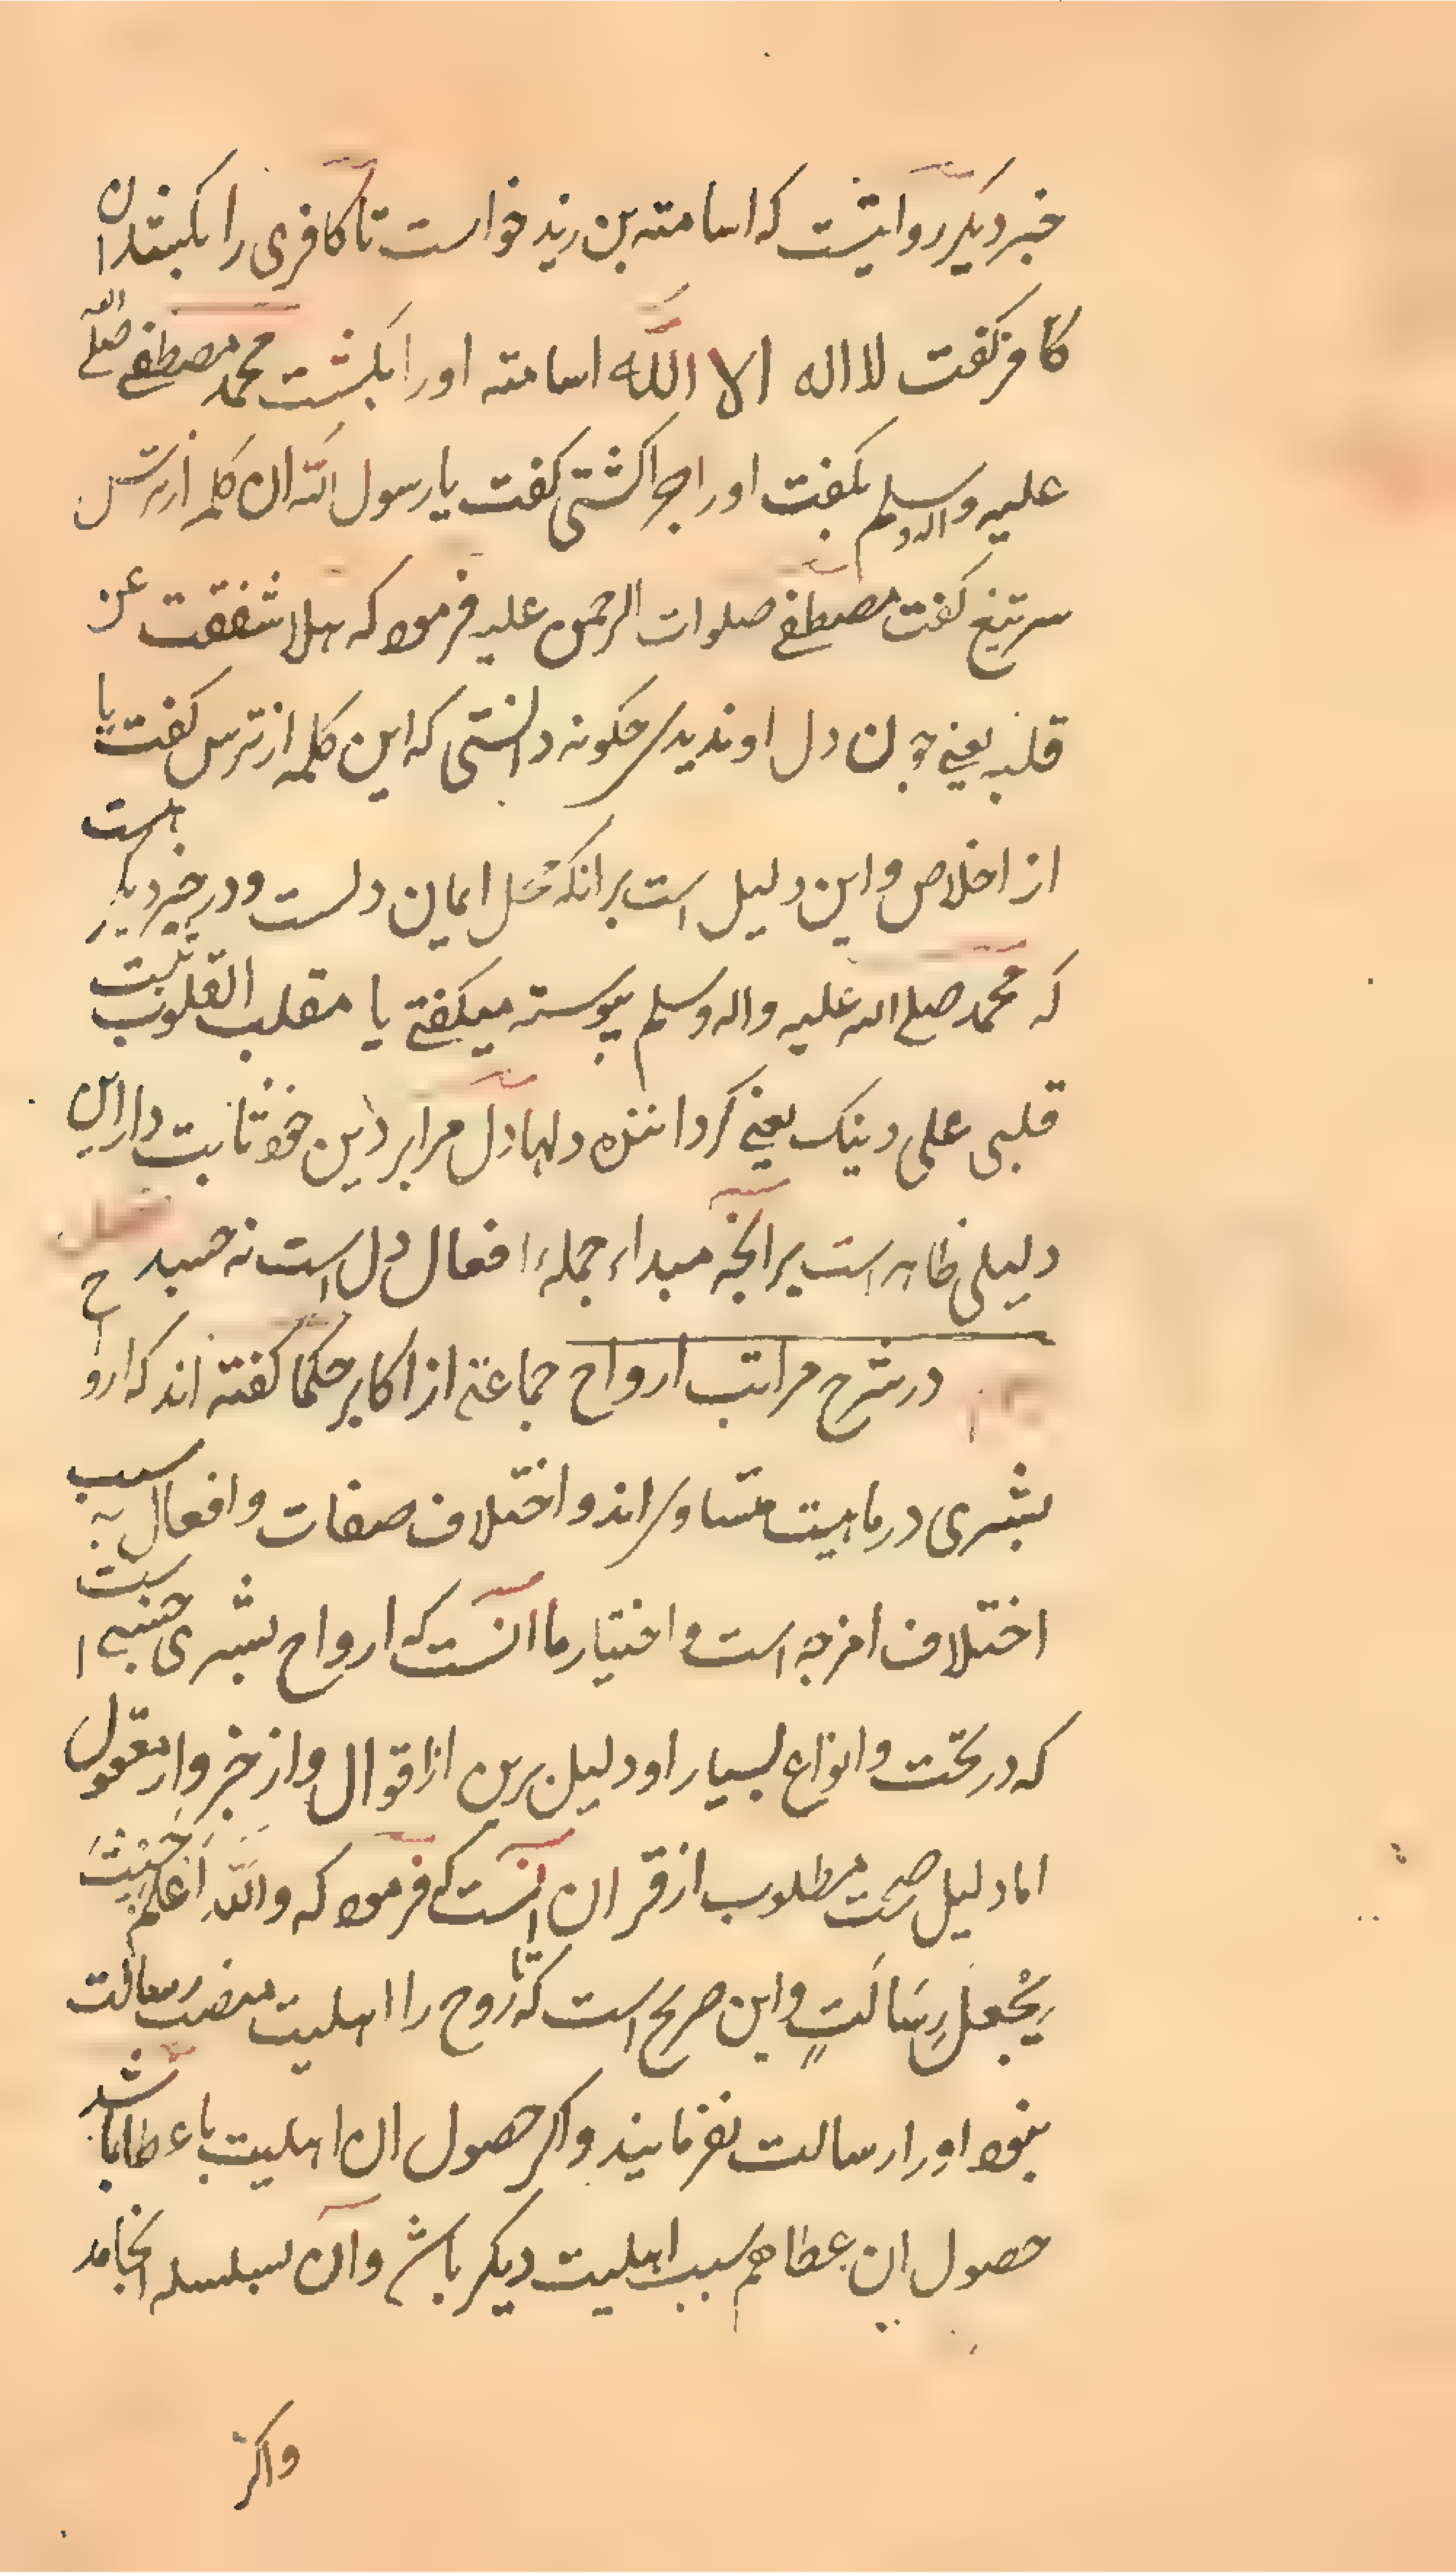 خبر دیکر روایتست که اسامته بن زید خواست تا کافری را بکشد ان
کافر کفت لا اله الا الله اسامته او را بکشت محمد مصطفی صلی الله
علیه واله وسلم بکفت او را چرا کشتی کفت یا رسول الله ان کلمه از ترس
سر تیغ کفت مصطفی صلوات الرحمن علیه فرمود که هلا شققت عن
قلبه یعنی چون دل او ندیدی چکونه دانستی که این کلمه از ترس کفت یا
از اخلاص و این دلیل است بر انکه محل ایمان دلست و در خبر دیکر هست
که محمد صلی الله علیه واله وسلم پیوسته میکفتی یا مقلب القلوب ثبت
قلبی علی دینک یعنی کرداننده دلها دل مرا بر دین خود ثابت دار این
دلیلی ظاهر است بر انچه مبداء جمله افعال دل است نه جسد فصل
در شرح مراتب ارواح جماعتی از اکابر حکما کفته اند که ارواح
بشری در ماهیت متساوی اند و اختلاف صفات و افعال به سبب
اختلاف امزجه است و اختیار ما انست که ارواح بشری جنسی است
که در تحت و انواع بسیار او دلیل برین از اقوال و از خبر و از معقول
اما دلیل صحت مطلوب از قران انست که فرمود که والله اَعلم حَیْثُ
یَجْعل رِسَالَتٍ و این صریح است که تا روح را اهلیت منصب رسالت
نبود او را رسالت نفرمایند و اکر حصول ان اهلیت با عطا باشد
حصول این عطا هم سبب اهلیت دیکر باشد وآن بسلسله انجامد
واکر